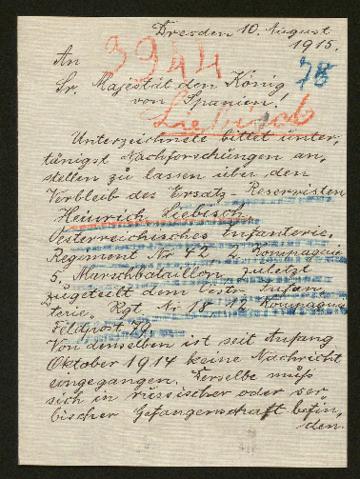 Dresden 10. August
1915.
3944
78
An
Sr. Majestät den König
von Spanien!
Liebisch
Unterzeichnete bittet unter,
tänigst Nachforschungen an,
stellen zu lassen über den
Verbleib des Ersatz-Reservisten
Heinrich Liebisch
Österreichisches Infanterie,
Regiment Nr 42 2 Kompagnie
5. Marschbataillon, zuletzt
zugeteilt dem Östr. Infan
terie, Rgt. Nr 18 12 Kompagnie
Feldpost 79.
Von demselben ist seit Anfang
Oktober 1914 keine Nachricht
eingegangen. Derselbe muß
sich in russischer oder ser,
bischer Gefangenschaft befin,
den.